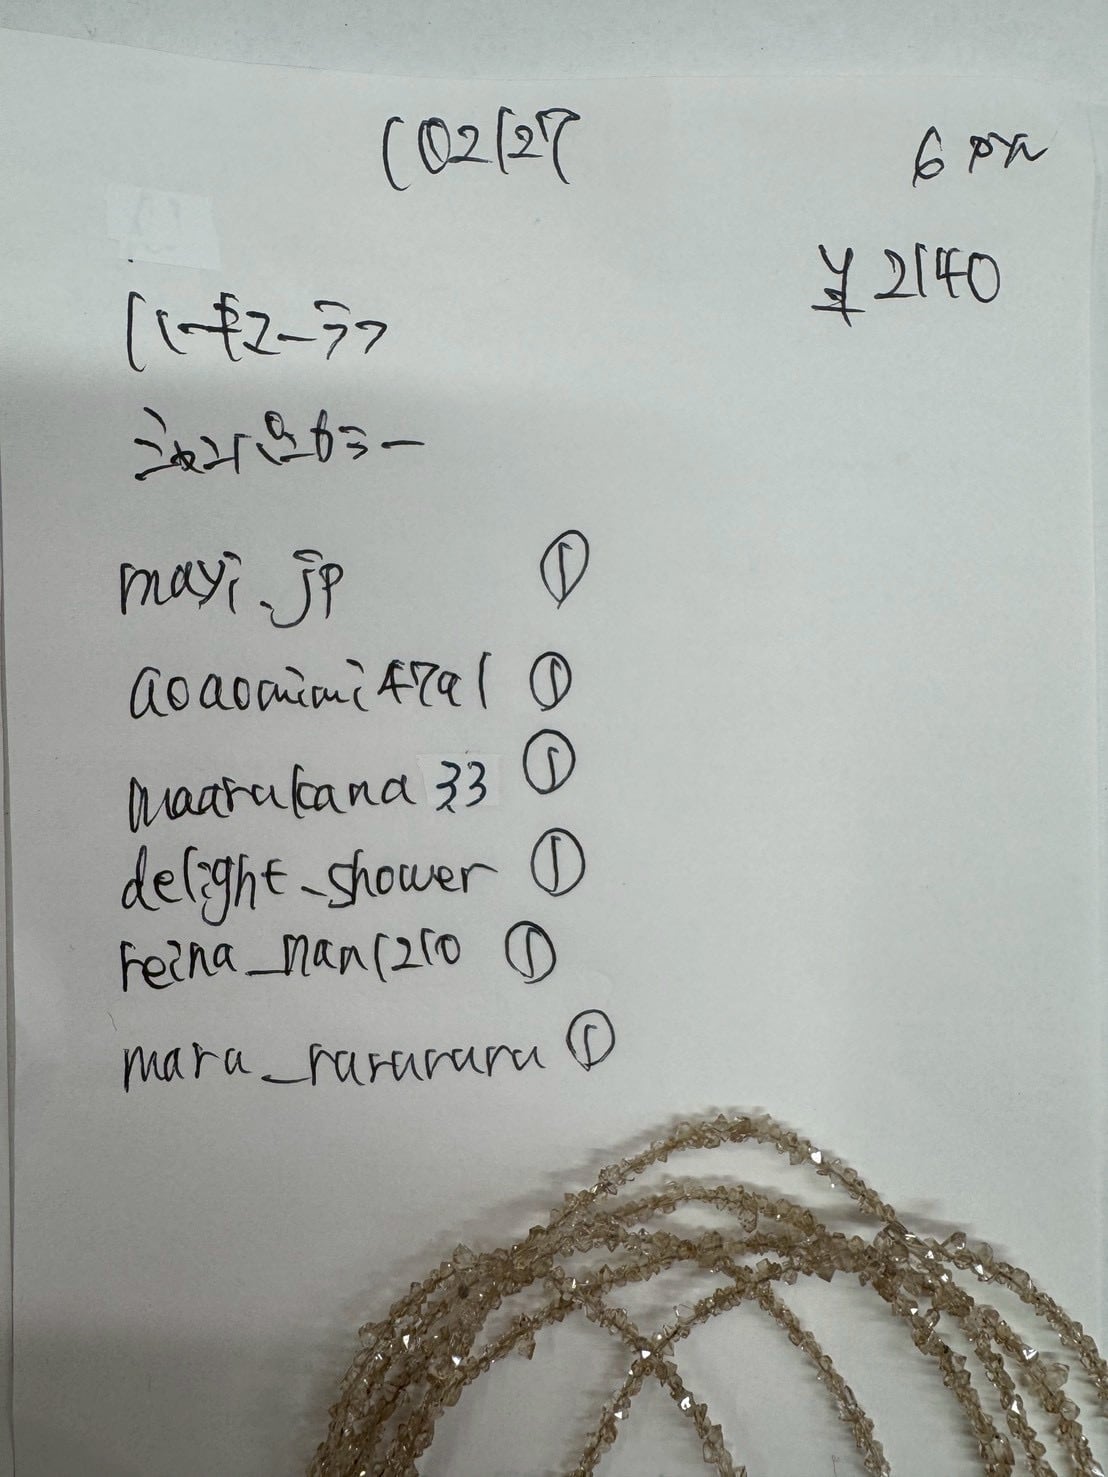 102127
6 pcs
¥ 2140
mayi.jp ①
aoaomimi4791 ①
maarukana33 ①
delight_shower ①
reina_nan1210 ①
mara_rararara ①